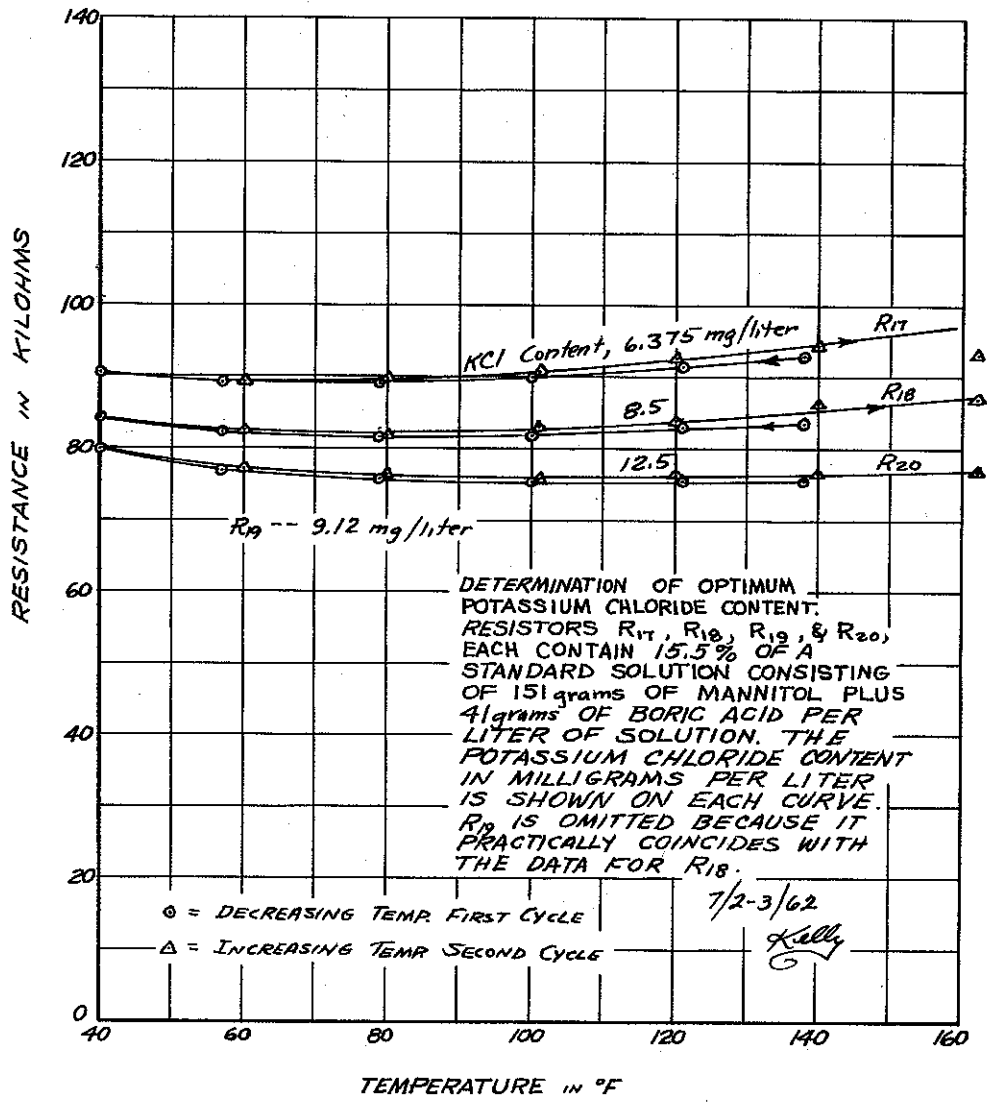 140
120
100
80
60
40
20
0
RESISTANCE IN KILOHMS
KCl Content, 6.375 mg/liter
R17
8.5
R18
12.5
R20
R19 -- 9.12 mg/liter
DETERMINATION OF OPTIMUM
POTASSIUM CHLORIDE CONTENT.
RESISTORS R17, R18, R19, & R20,
EACH CONTAIN 15.5% OF A
STANDARD SOLUTION CONSISTING
OF 151 grams OF MANNITOL PLUS
41 grams OF BORIC ACID PER
LITER OF SOLUTION. THE
POTASSIUM CHLORIDE CONTENT
IN MILLIGRAMS PER LITER
IS SHOWN ON EACH CURVE.
R19 IS OMITTED BECAUSE IT
PRACTICALLY COINCIDES WITH
THE DATA FOR R18.
7/2-3/62
Kelly
⊙ = DECREASING TEMP. FIRST CYCLE
△ = INCREASING TEMP SECOND CYCLE
40 60 80 100 120 140 160
TEMPERATURE IN °F